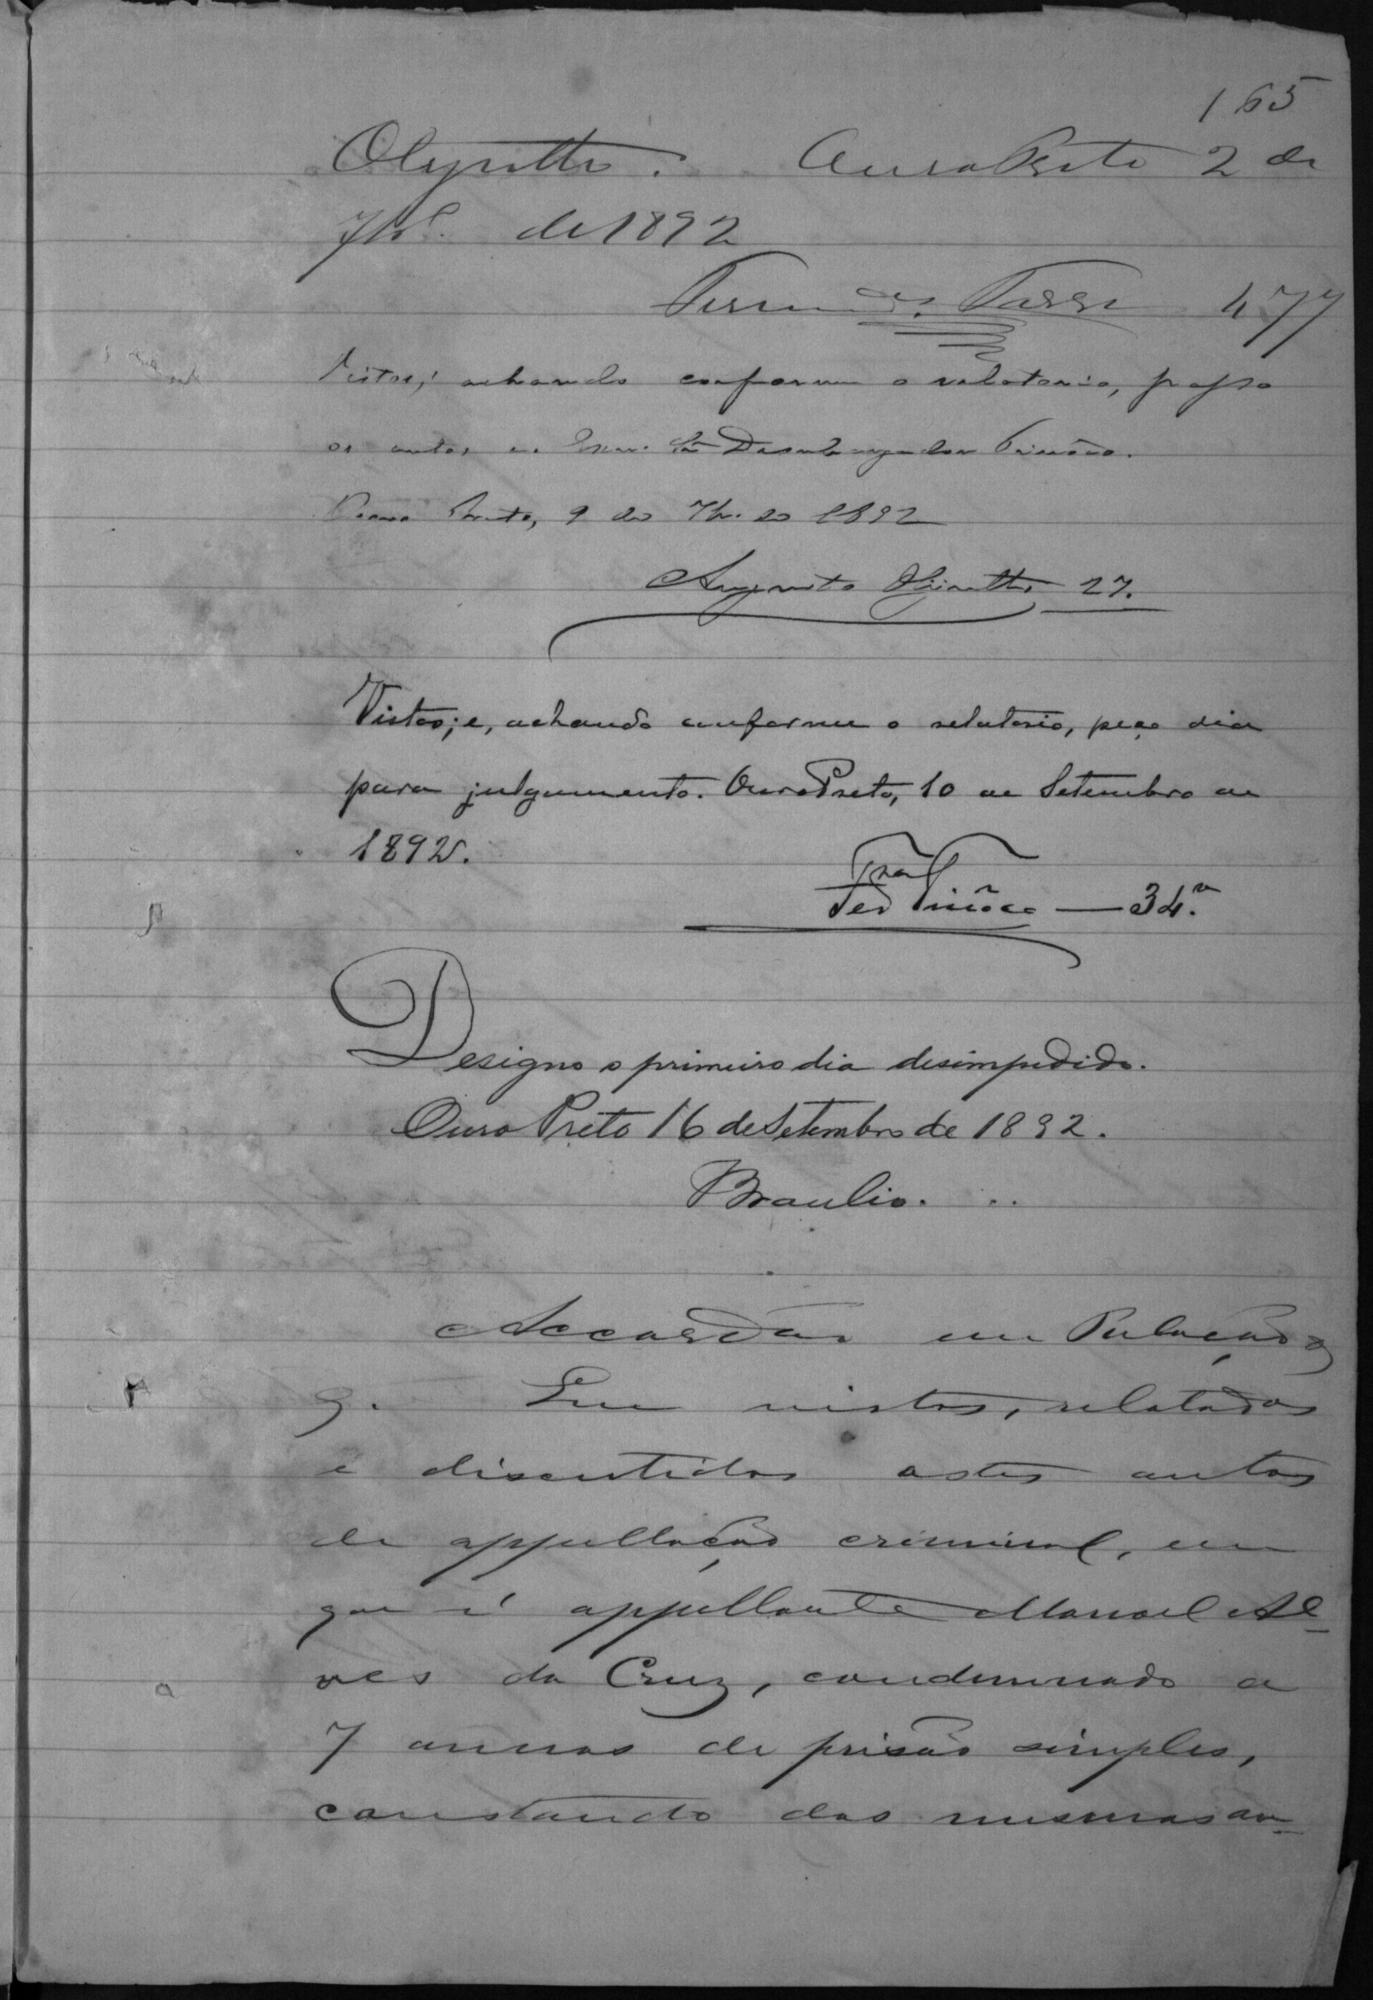 165
Olyntho. Ouro Preto 2 de
7br.º de 1892
Fernandes Torres 477
Vistos; achando conforme o relatorio, passo
os autos ao Exm. Sr. Desembargador Tinôco.
Ouro Preto, 9 de 7br. de 1892
Augusto Olyntho 27.
Vistos; e, achando conforme o relatorio, peço dia
para julgamento. Ouro Preto, 10 de Setembro de
1892.
Tinôco — 34.
Designo o primeiro dia desimpedido.
Ouro Preto 16 de Setembro de 1892.
Braulio.
Accordão em Relação
Que vistos, relatados
e discutidos estes autos
de appellação criminal, em
que é appellante Manoel Al-
ves da Cruz, condemnado a
7 annos de prisão simples,
constando dos mesmos au-